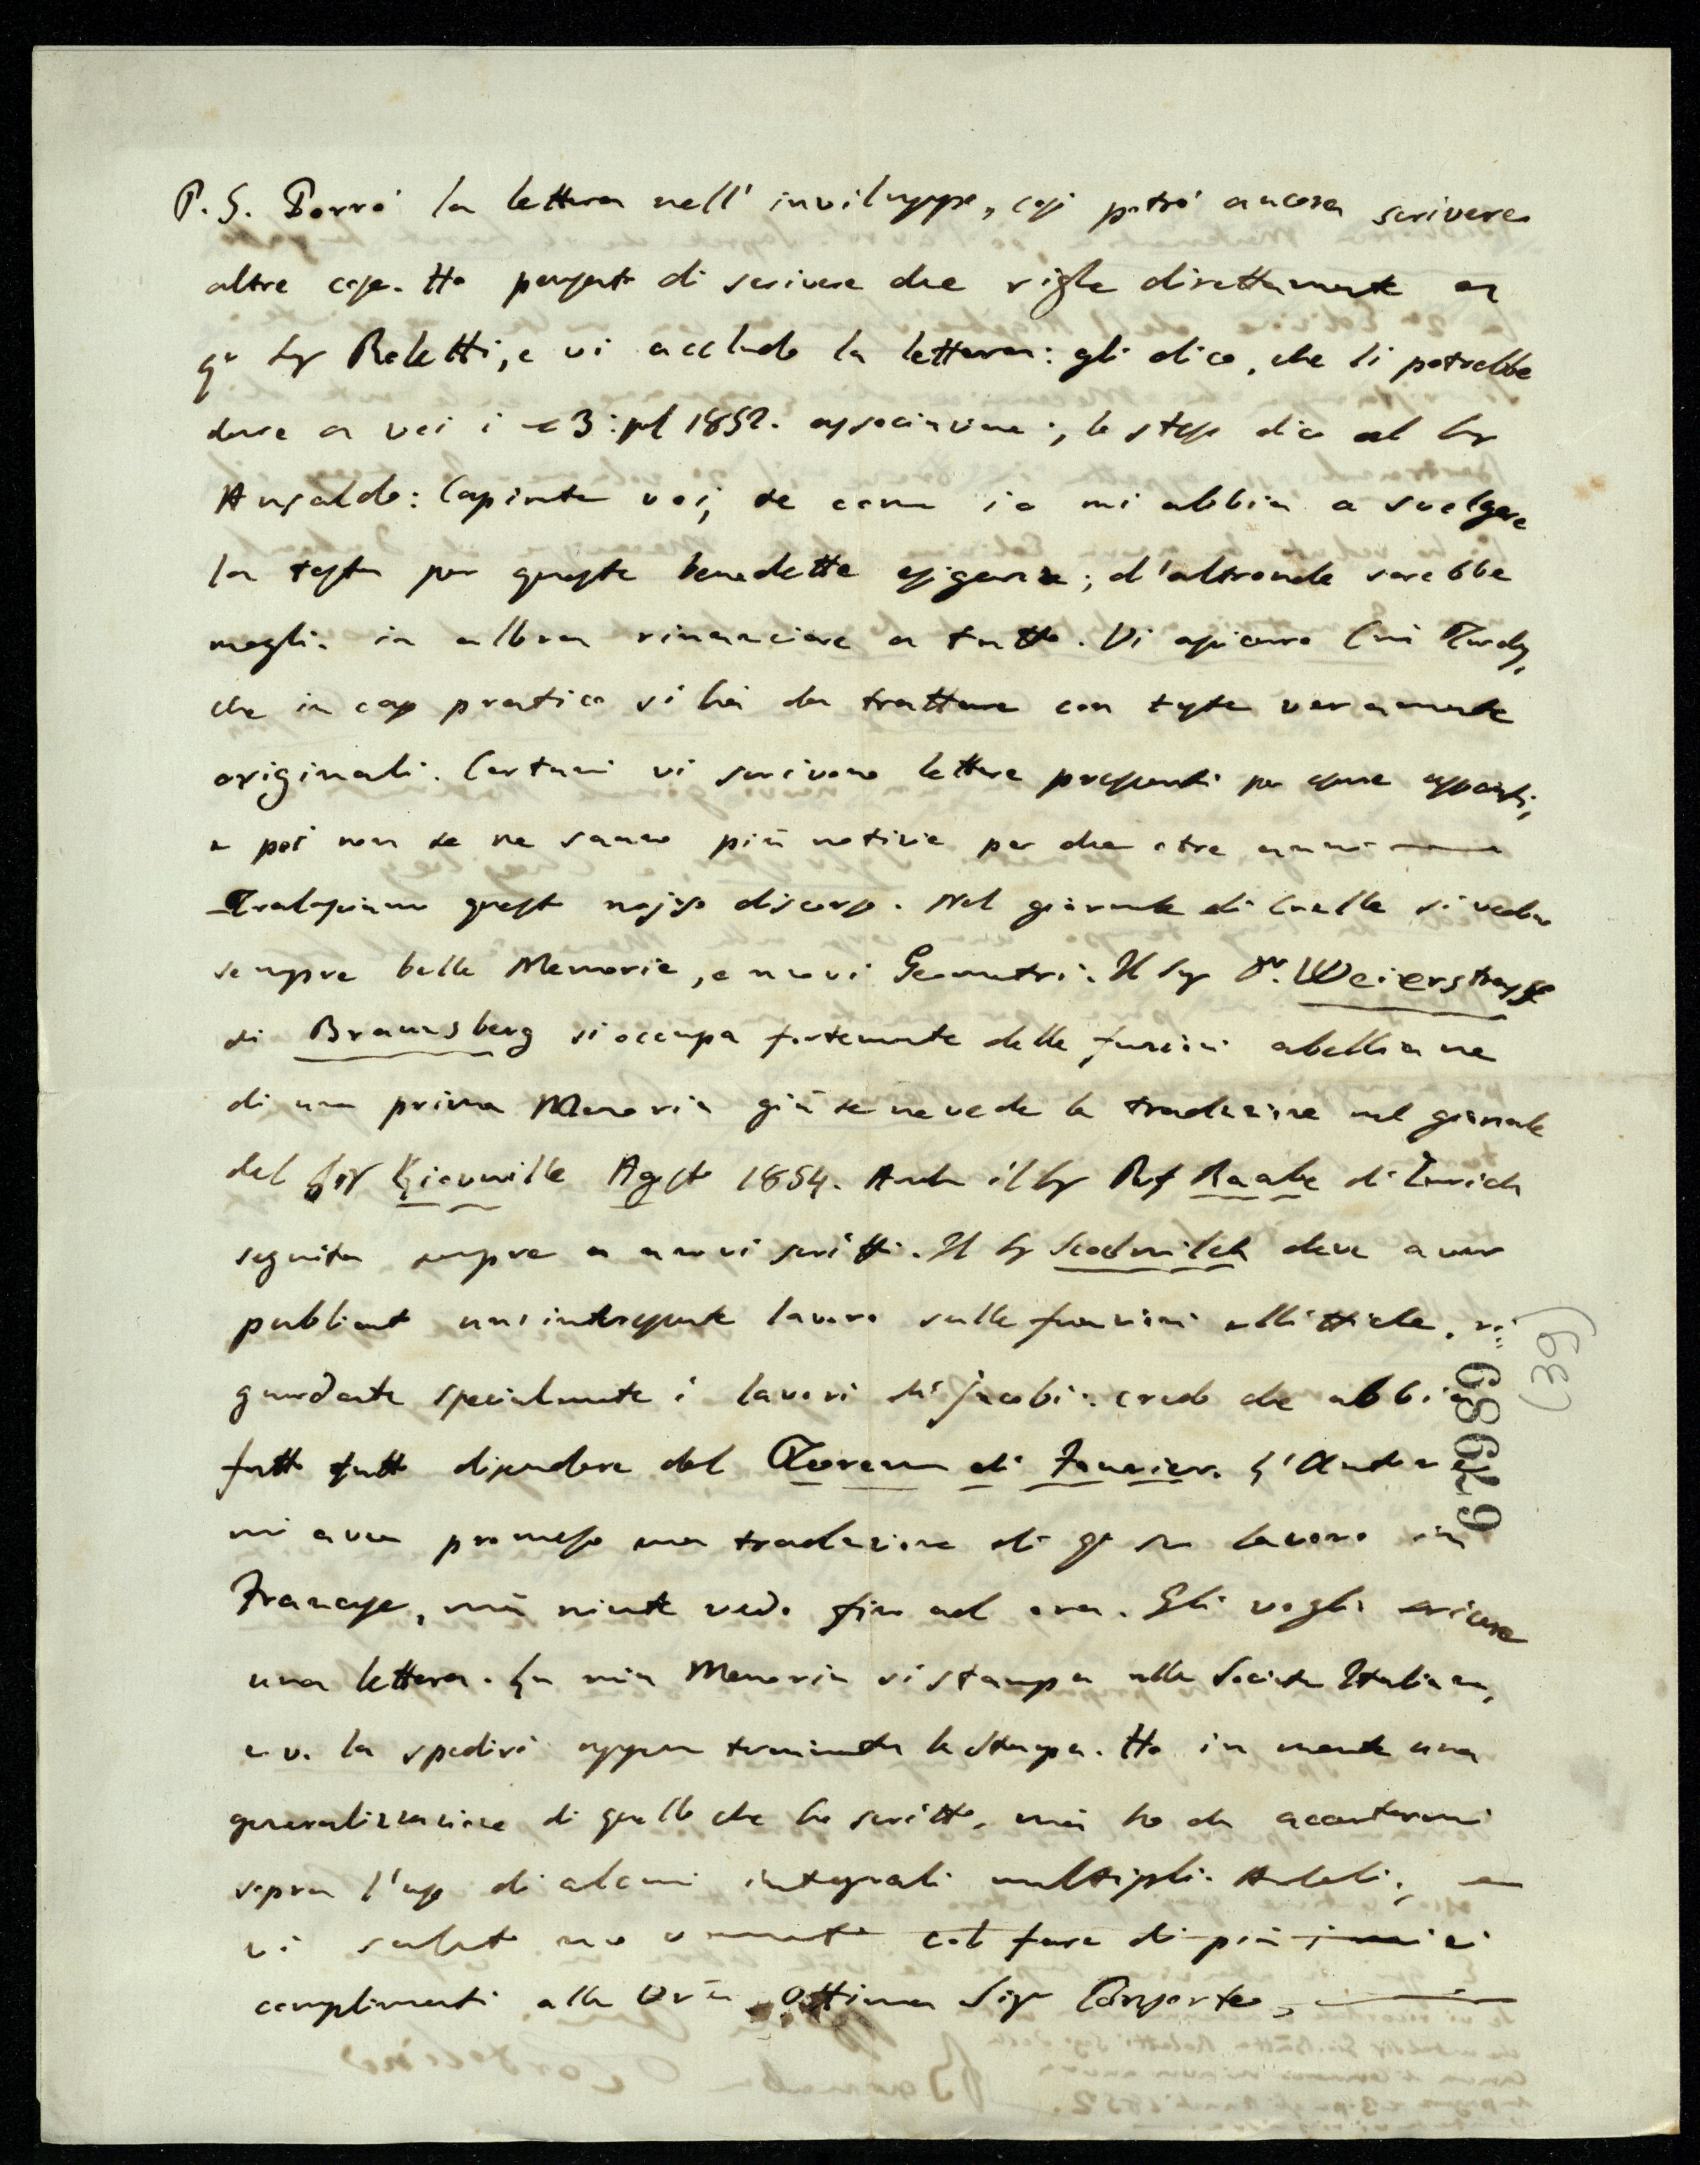 P. S. Porrò la lettera nell'inviluppo, così potrò ancora scrivere
altre cose. Ho pensato di scrivere due righe direttamente a
qº Sigr Boletti, e vi accludo la lettera: gli dico, che li potrebbe
dare a voi i 3: pel 1852. associazione:, lo stesso dico al Sigr
Ansaldo: Capirete voi, se come io mi abbia a svolgere
la testa per queste benedette esigenze; d'altronde sarebbe
meglio in allora rinunciare a tutto. Vi assicuro Caro Tardy,
che in caso pratico si ha da trattare con teste veramente
originali. Certuni vi scrivono lettere pressanti per essere associati,
e poi non se ne sanno più notizie per due o tre anni
Tralasciamo questo nojoso discorso. Nel giornale di Crelle si vedono
sempre belle Memorie, e nuovi Geometri. Il Sigr Dr. Weierstrass
di Braunsberg si occupa fortemente delle funzioni abelliane
di una prima Memoria già se ne vede la traduzione nel giornale
del Sigr Liouville Agosto 1854. Anche il Sigr Prof Raabe di Zurich
seguita sempre a nuovi scritti. Il Sigr Scolmilch deve aver
publicato un interessante lavoro sulle funzioni ellittiche, ri-
guardante specialmente i lavori di Jacobi: credo che abbia
fatto tutto dipendere dal Teorema di Fourier. L'Autore
mi avea promesso una traduzione di qº suo lavoro in
Francese, mà niente vedo fin ad ora. Gli voglio scrivere
una lettera. La mia Memoria si stampa alla Società Italiana,
e ve la spedirò appena terminata la Stampa. Ho in mente una
generalizzazione di quello che ho scritto, mà ho da accertarmi
sopra l'uso di alcuni integrali multipli.
vi saluto col fare di più i miei
complimenti alla Vra Ottima Sigra Consorte,
(39)
679689